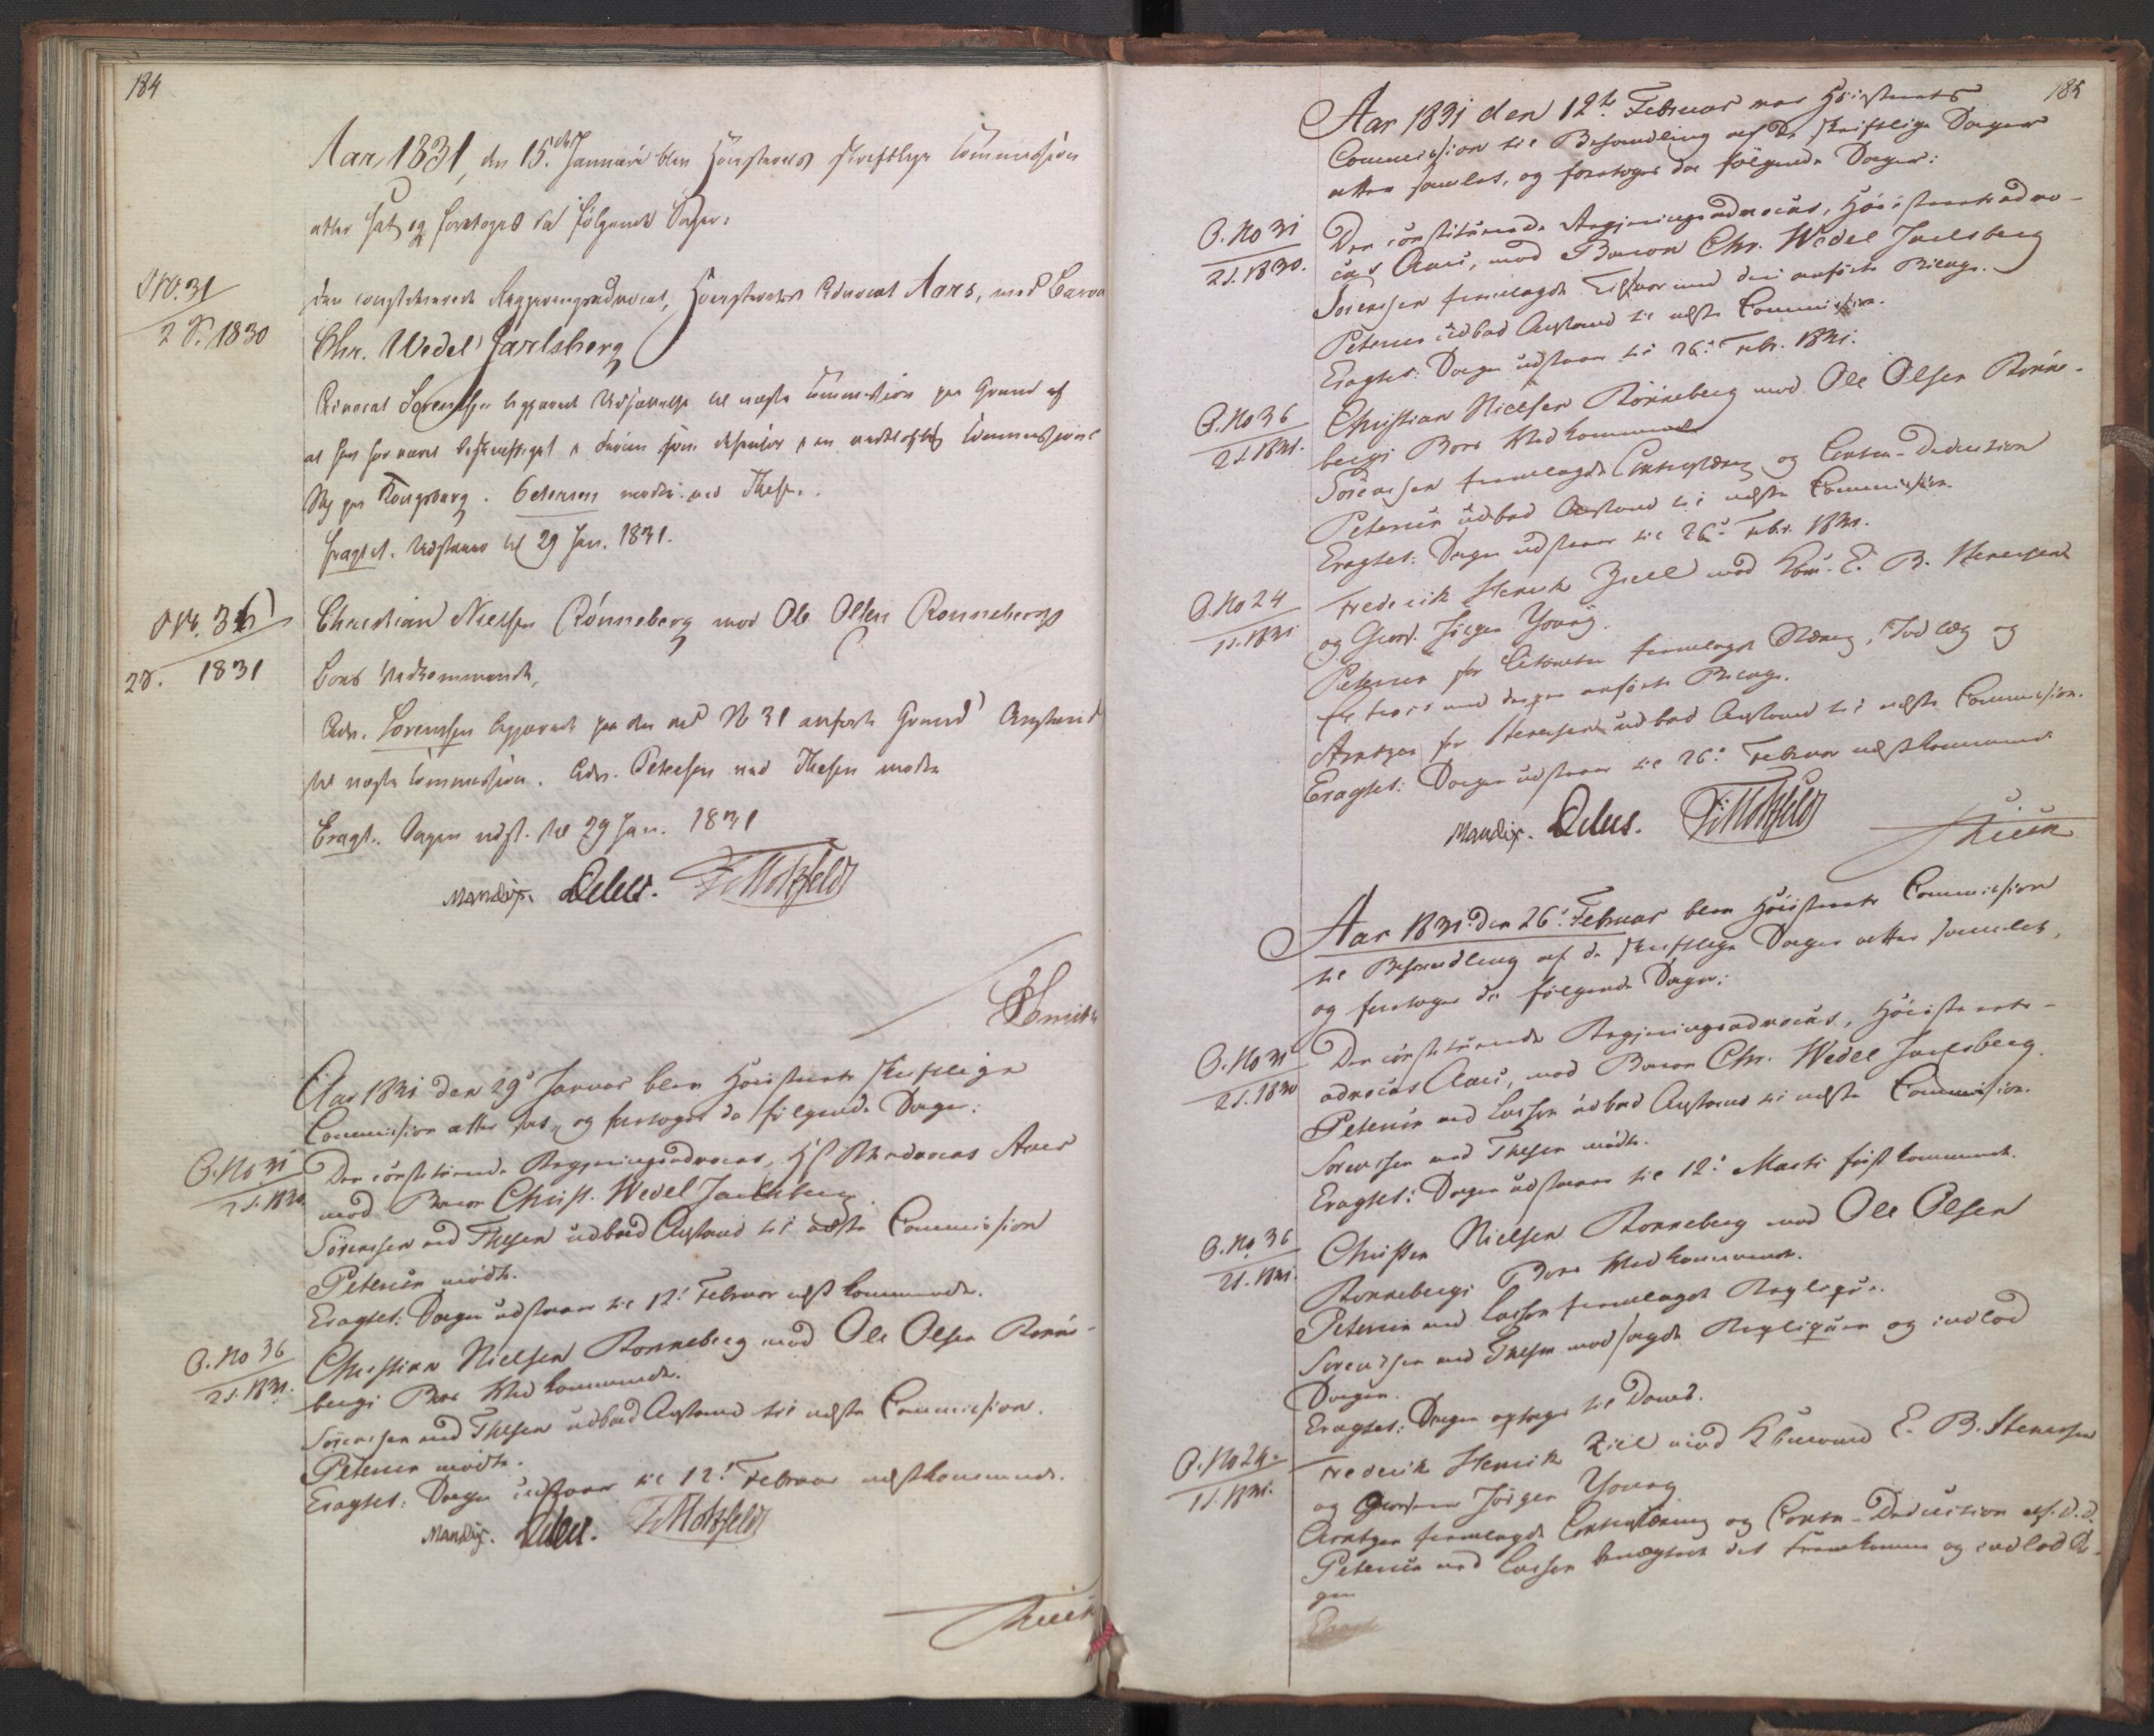 184
Aar 1831, den 15de Januar blev Høiesterets skriftlige Commission
atter sat og foretoges da følgende Sager:
No. 31
2 S. 1830
Den constituerede Regjeringsadvocat, Høiesterets Advocat Aars, mod Baron
Chr. Wedel Jarlsberg
Advocat Sørensen begjærede Udsættelse til næste Commission paa Grund af
at han har været beskjæftiget som Defensor i en Commissions
Sag paa Kongsberg. Petersen mødte ved Thesen.
Eragtet. Udstaaer til 29 Jan. 1831.
No. 36
2 S. 1831
Christian Nielsen Rønneberg mod Ole Olsen Rønnebergs
Boes Vedkommende,
Adv. Sørensen begjærede paa den ved No 31 anførte Grund Anstand
til næste Commission. Adv. Petersen ved Thesen mødte
Eragt. Sagen udst. til 29 Jan. 1831
Mandix. Debes. F Motzfeldt
Smith
Aar 1831 den 29de Januar blev Høiesterets skriftlige
Commission atter sat, og foretoges da følgende Sager:
O. No 31
2 S. 1830
Den constituerede Regjeringsadvocat, HstRAdvocat Aars
mod Baron Christ. Wedel Jarlsberg.
Sørensen ved Thesen udbad Anstand til næste Commission
Petersen mødte.
Eragtet: Sagen udstaaer til 12te Februar næstkommende.
O. No 36
2 S. 1831.
Christian Nielsen Rønneberg mod Ole Olsen Rønne-
bergs Boes Vedkommende.
Sørensen ved Thesen udbad Anstand til næste Commission.
Petersen mødte.
Eragtet: Sagen udstaaer til 12te Februar næstkommende.
Mandix. Debes. F Motzfeldt
185
Aar 1831 den 12te Februar var Høiesterets
Commission til Behandling af de skriftlige Sager
atter samlet, og foretoges da følgende Sager:
O. No 31
2 S. 1830.
Den constituerede Regjeringsadvocat, Høiesteretsadvo-
cat Aars, mod Baron Chr. Wedel Jarlsberg
Sørensen fremlagde Tilsvar med deri anførte Bilage.
Petersen udbad Anstand til næste Commission.
Eragtet: Sagen udstaaer til 26de Febr. 1831.
O. No 36
2 S. 1831.
Christian Nielsen Rønneberg mod Ole Olsen Rønne-
bergs Boes Vedkommende
Sørensen fremlagde Contrastævning og Contra-Deduction
Petersen udbad Anstand til næste Commission
Eragtet: Sagen udstaaer til 26de Febr. 1831.
O. No 24
1 S. 1831
Frederik Henrik Ziel mod Kbm. E. B. Stenersen
og Grosr. Jørgen Young.
Petersen for Citanten fremlagde Stævning, Indlæg og
med deri anførte Bilage.
Arntzen for Stenersen udbad Anstand til næste Commission.
Eragtet: Sagen udstaaer til 26de Februar næstkommende
Mandix. Debes. F Motzfeldt
Aar 1831 den 26de Februar blev Høiesterets Commission
til Behandling af de skriftlige Sager atter samlet,
og foretoges da følgende Sager:
O. No 31
2 S. 1830
Den constituerede Regjeringsadvocat, Høiesterets-
advocat Aars, mod Baron Chr. Wedel Jarlsberg.
Petersen ved Lasson udbad Anstand til næste Commission.
Sørensen ved Thesen mødte.
Eragtet: Sagen udstaaer til 12te Marts førstkommende.
O. No. 36
2 S. 1831.
Christen Nielsen Rønneberg mod Ole Olsen
Rønnebergs Boes Vedkommende.
Petersen ved Lasson fremlagde Repliqve.
Sørensen ved Thesen modsagde Repliqven og indlod
Sagen.
Eragtet: Sagen optages til Doms.
O. No 24.
1 S. 1831.
Frederik Henrik Ziel mod Kbmand E. B. Stenersen
og Grosserer Jørgen Young
Arntzen fremlagde Contrastævning og Contra-Deduction af D. D.
Petersen ved Lasson benægtede det Fremkomne og indlod Sa-
gen